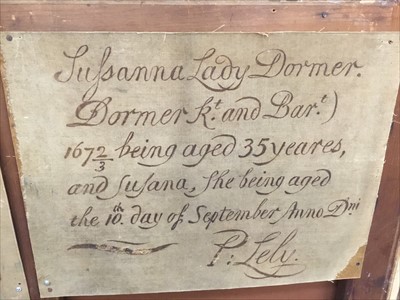 Sussanna Lady Dormer.
Dormer Kt. and Bart.)
1672/3 being aged 35 yeares,
and Susana, She being aged
the 10th. day of September Anno Dm̃i
P: Lely.